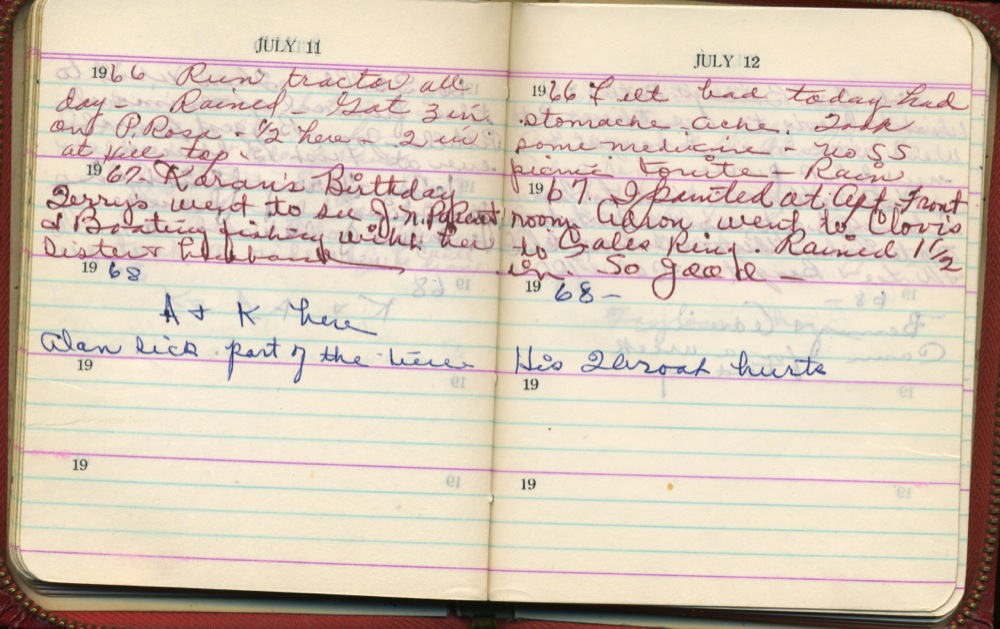 JULY 11
1966 Run tractor all
day - Rained - Got 3 in
on P. Rosa - 1/2 here - 2 in
at Hill top.
1967 Karan's Birthday
Terrys went to see J.N.
& Boating fishing with her
Sister & husband
1968
A & K here
Alan sick part of the time
19
19
JULY 12
1966 Felt bad today had
stomache ache. Took
some medicine - No SS
picnic tonite - Rain
1967. I painted at Apt. Front
room. Aaron went to Clovis
to Sales Ring. Rained 1 1/2
in. So good -
1968 -
His Throat hurts
19
19